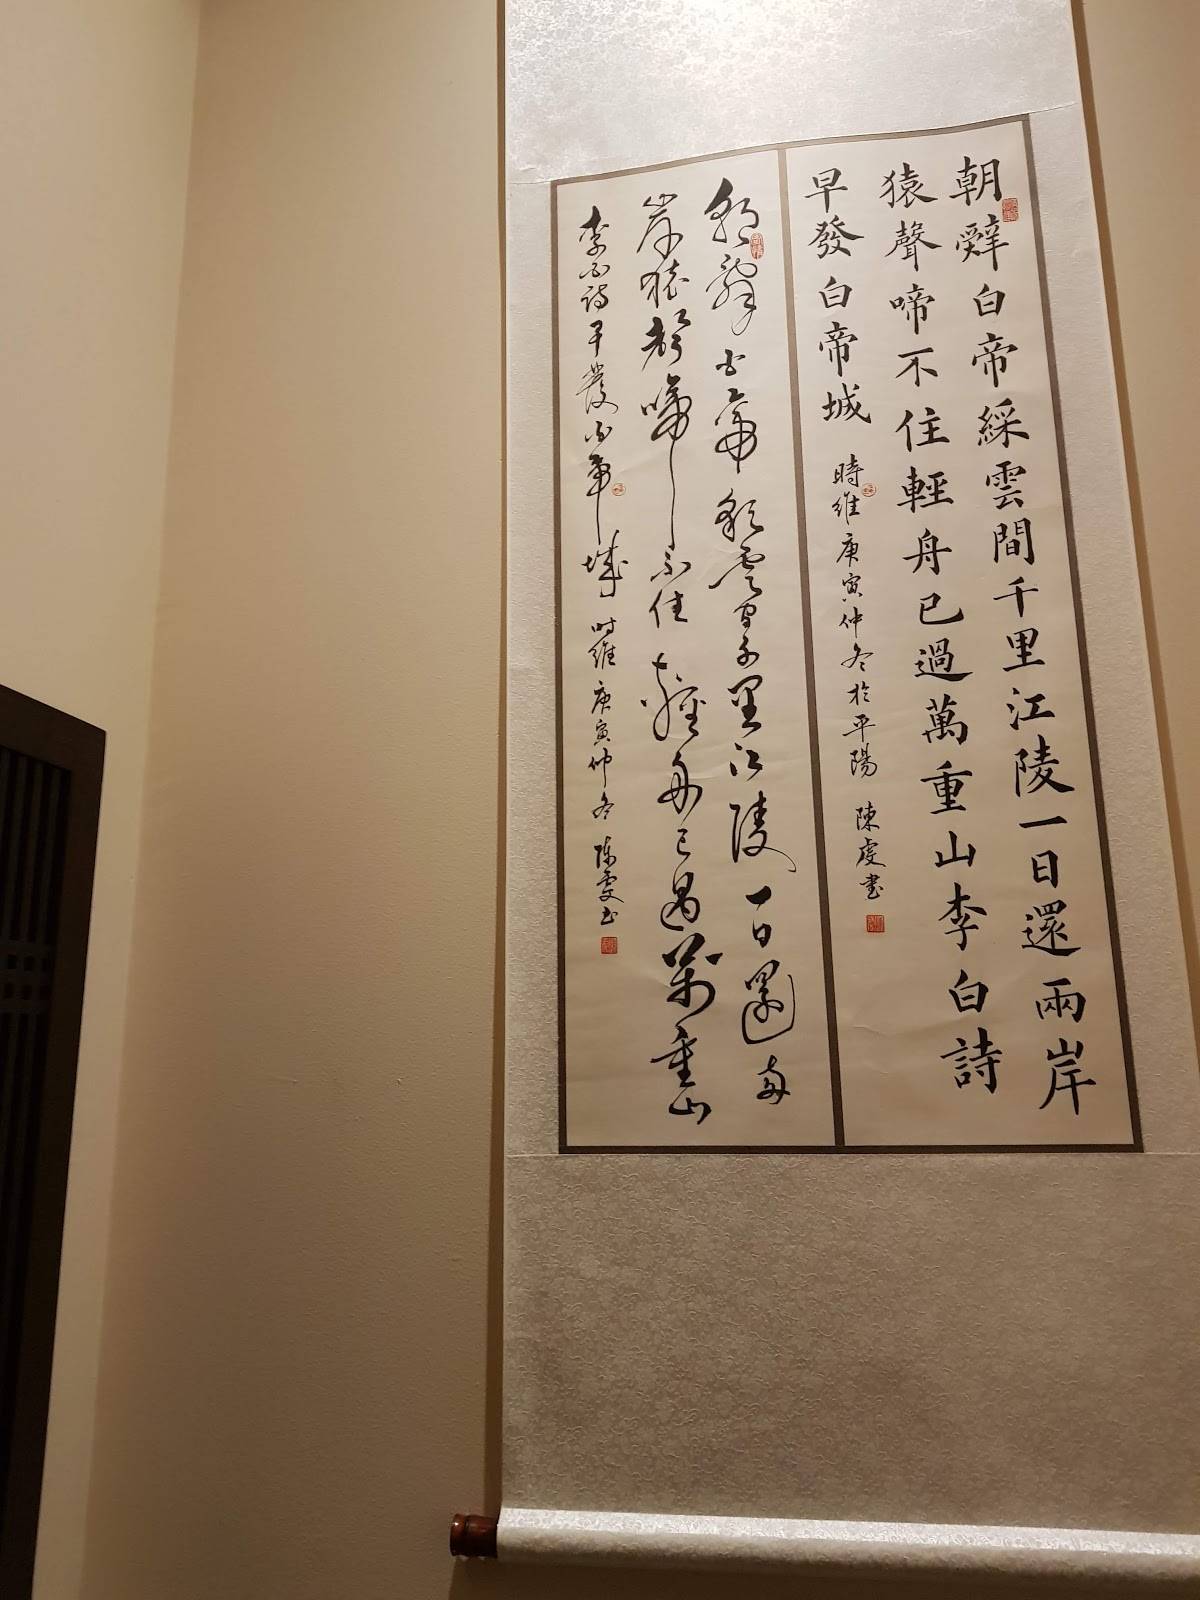 朝辭白帝綵雲間千里江陵一日還兩岸
猿聲啼不住輕舟已過萬重山李白詩
早發白帝城
時維庚寅仲冬於平陽 陳虔書
朝辭白帝彩雲間千里江陵一日還兩
岸猿聲啼不住輕舟已過萬重山
李白詩早發白帝城 时維庚寅仲冬 陈虔书